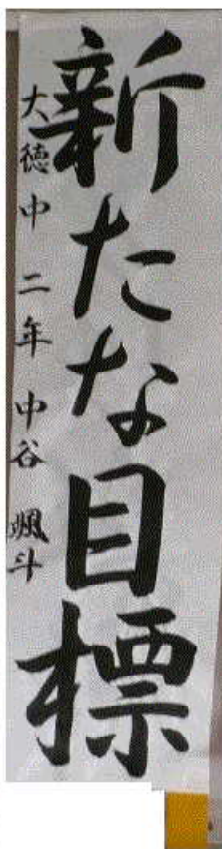 新たな目標
大徳中 二年 中谷 颯斗